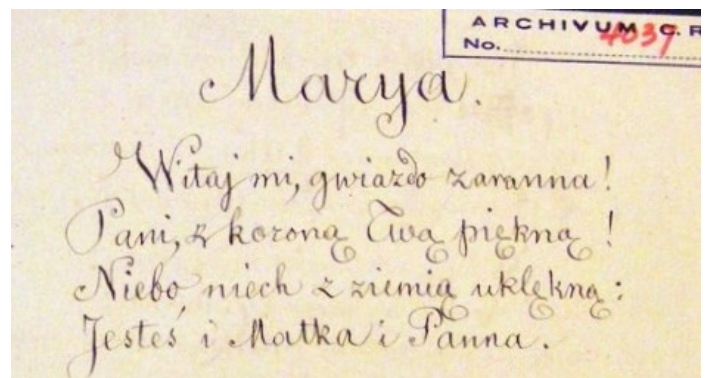 ARCHIVUM C. R
No. 4039
Marya.
Witaj mi, gwiazdo zaranna!
Pani, z koroną Twą piękną!
Niebo niech z ziemią uklękną:
Jesteś i Matka i Panna.